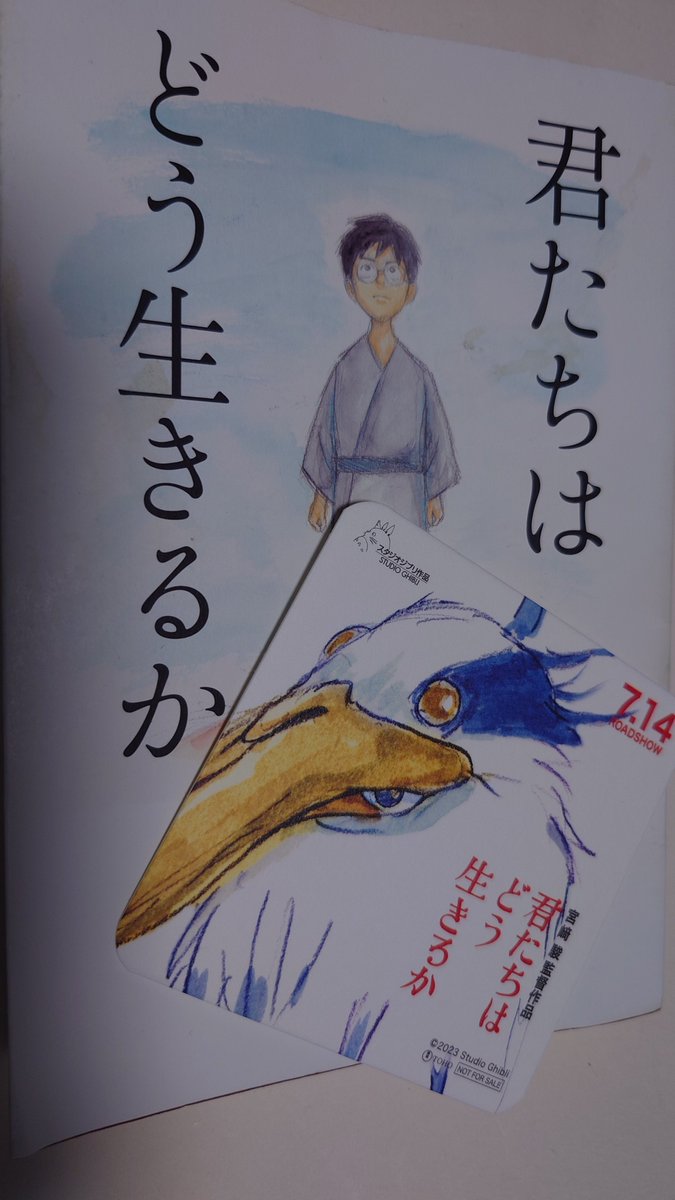 君たちは
どう生きるか
スタジオジブリ作品
STUDIO GHIBLI
7.14
ROADSHOW
君たちは
どう
生きるか
宮﨑 駿 監督作品
©2023 Studio Ghibli
TOHO
NOT FOR SALE